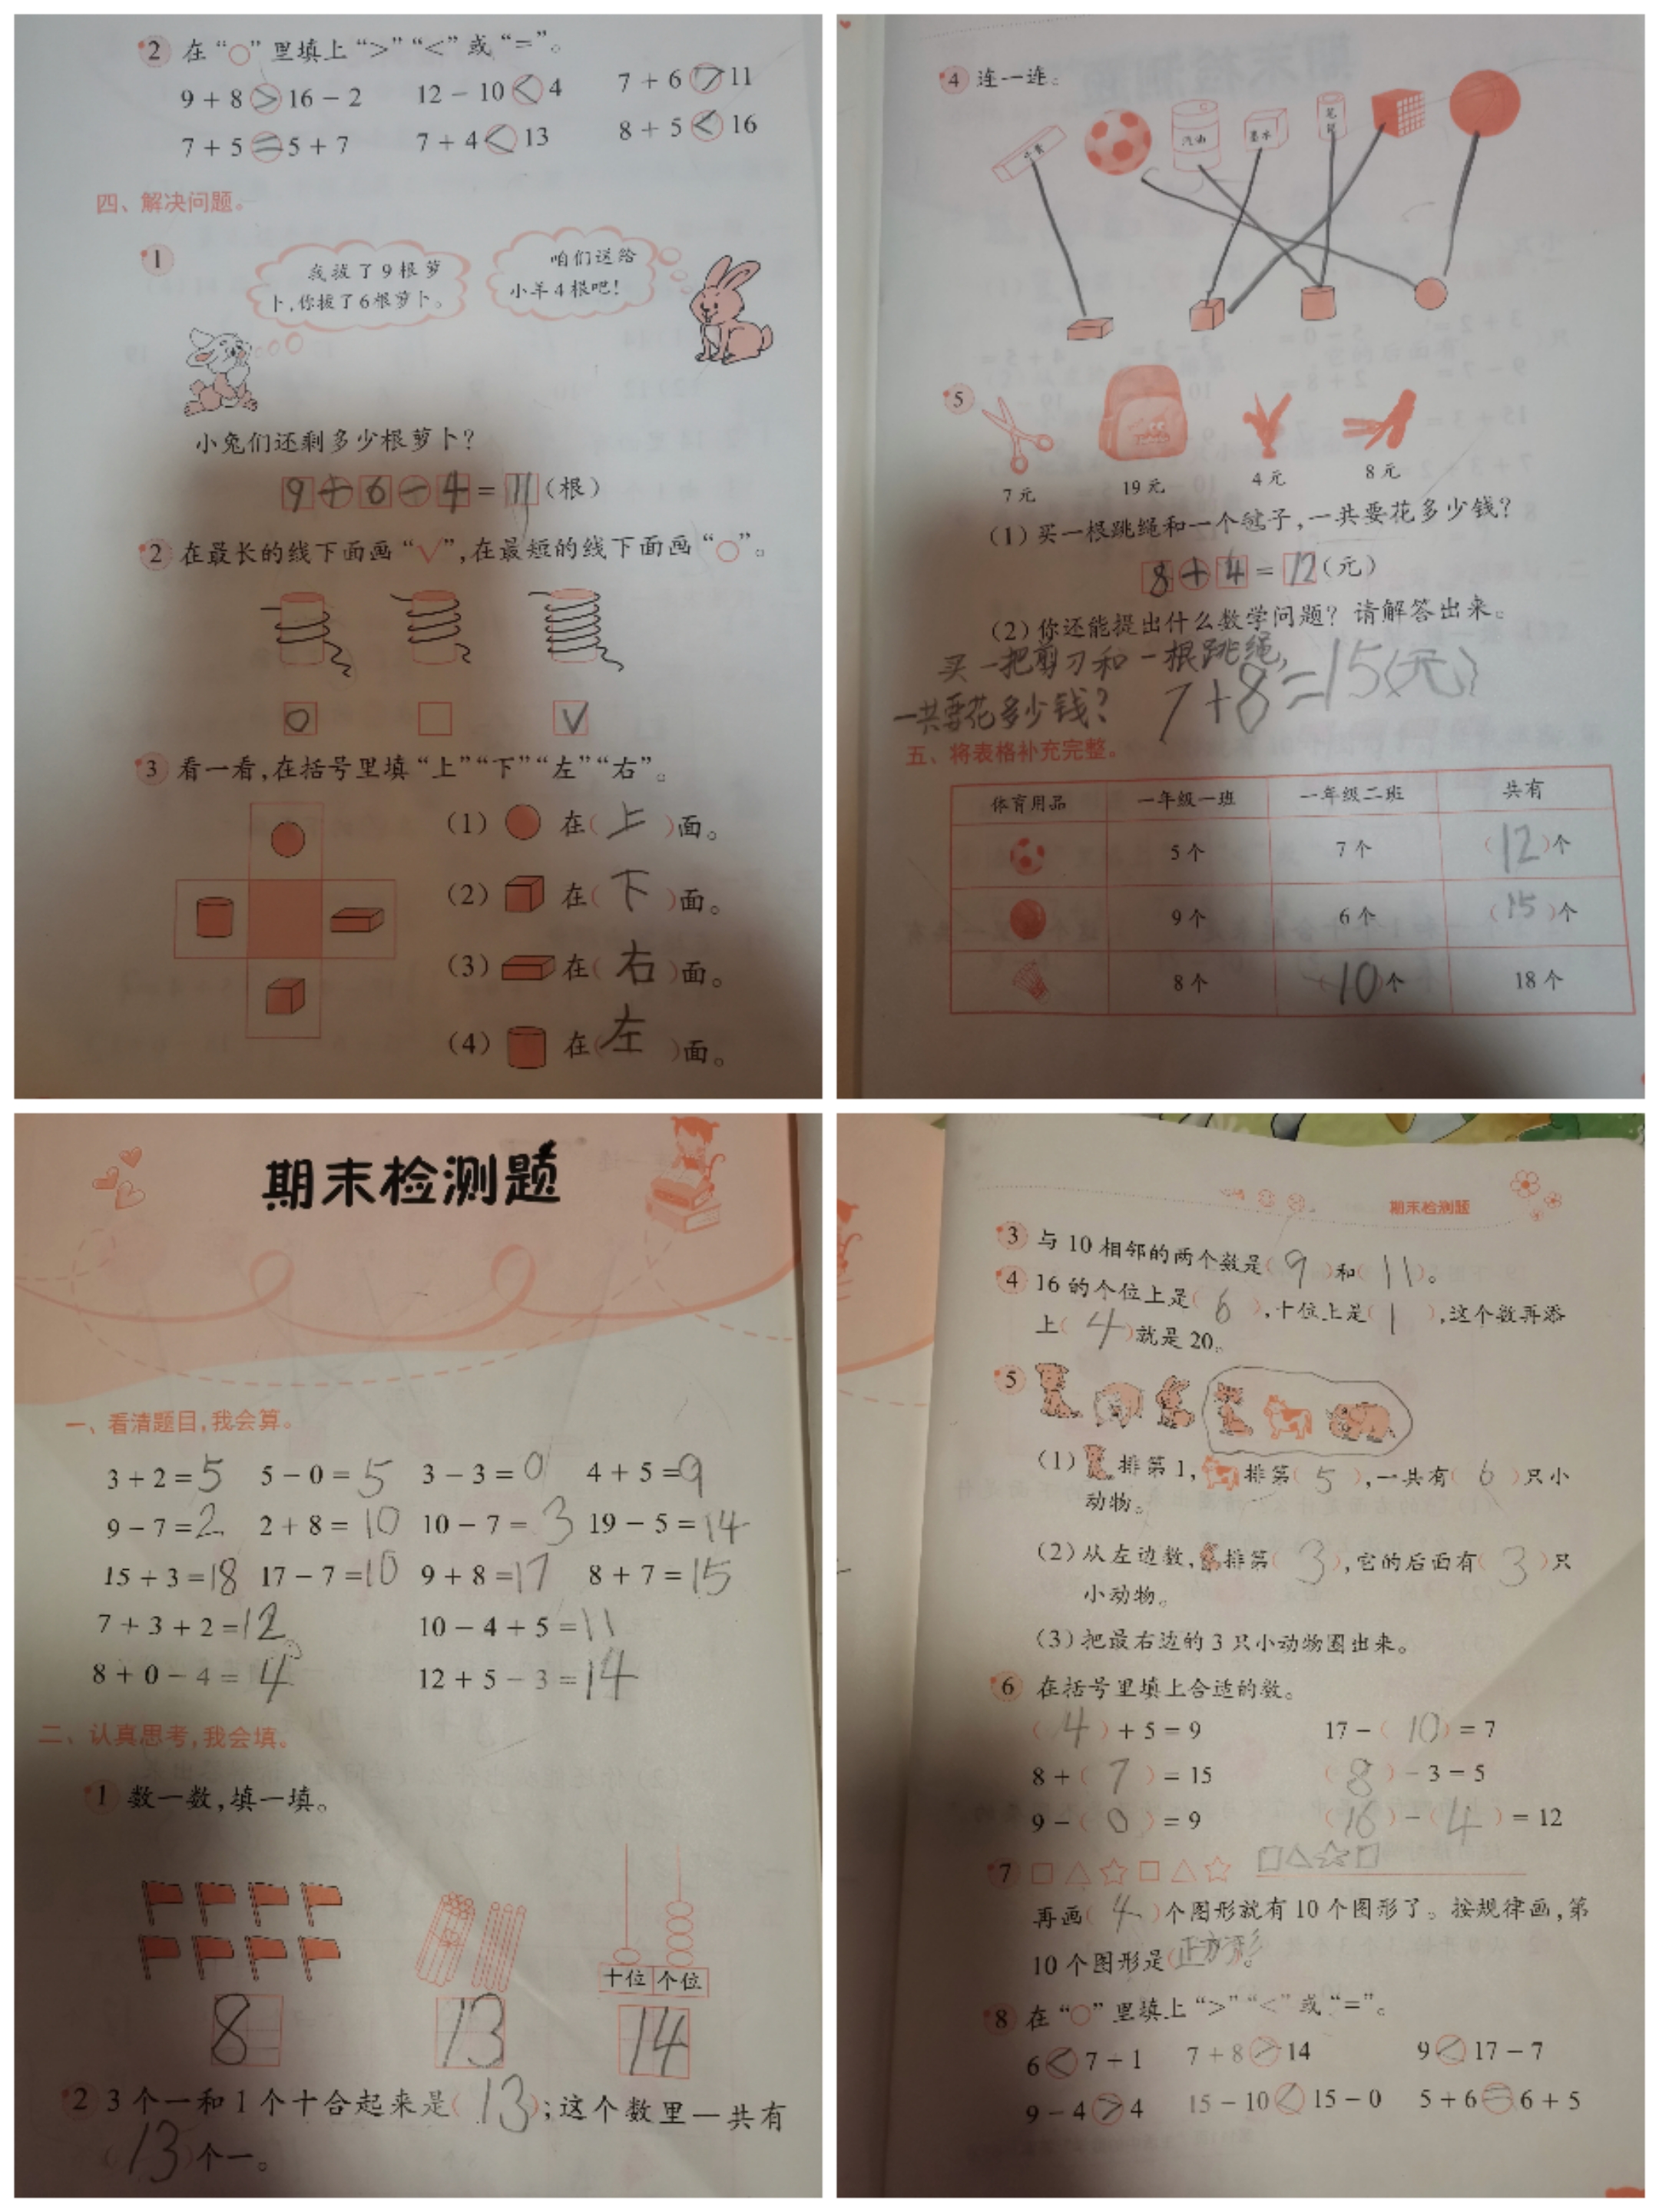 2 在“○”里填上“>”“<”或“=”。
9+8>16-2 12-10<4 7+6>11
7+5=5+7 7+4<13 8+5<16
四、解决问题。
1
我拔了9根萝
卜,你拔了6根萝卜。
咱们送给
小羊4根吧!
小兔们还剩多少根萝卜?
9+6-4=11(根)
2 在最长的线下面画“√”,在最短的线下面画“○”。
○ √
3 看一看,在括号里填“上”“下”“左”“右”。
(1) 在(上)面。
(2) 在(下)面。
(3) 在(右)面。
(4) 在(左)面。
4 连一连。
牙膏 汽油 墨水 笔筒
5
7元 19元 4元 8元
(1)买一根跳绳和一个毽子,一共要花多少钱?
8+4=12(元)
(2)你还能提出什么数学问题?请解答出来。
买一把剪刀和一根跳绳,
一共要花多少钱? 7+8=15(元)
五、将表格补充完整。
体育用品 一年级一班 一年级二班 共有
5个 7个 (12)个
9个 6个 (15)个
8个 10个 18个
期末检测题
一、看清题目,我会算。
3+2=5 5-0=5 3-3=0 4+5=9
9-7=2 2+8=10 10-7=3 19-5=14
15+3=18 17-7=10 9+8=17 8+7=15
7+3+2=12 10-4+5=11
8+0-4=4 12+5-3=14
二、认真思考,我会填。
1 数一数,填一填。
十位 个位
8 13 14
2 3个一和1个十合起来是(13);这个数里一共有
(13)个一。
期末检测题
3 与10相邻的两个数是(9)和(11)。
4 16的个位上是(6),十位上是(1),这个数再添
上(4)就是20。
5
(1) 排第1, 排第(5),一共有(6)只小
动物。
(2)从左边数, 排第(3),它的后面有(3)只
小动物。
(3)把最右边的3只小动物圈出来。
6 在括号里填上合适的数。
(4)+5=9 17-(10)=7
8+(7)=15 (8)-3=5
9-(0)=9 (16)-(4)=12
7 □△☆□△☆ □△☆□
再画(4)个图形就有10个图形了。按规律画,第
10个图形是(正方形)。
8 在“○”里填上“>”“<”或“=”。
6<7+1 7+8>14 9<17-7
9-4>4 15-10<15-0 5+6=6+5